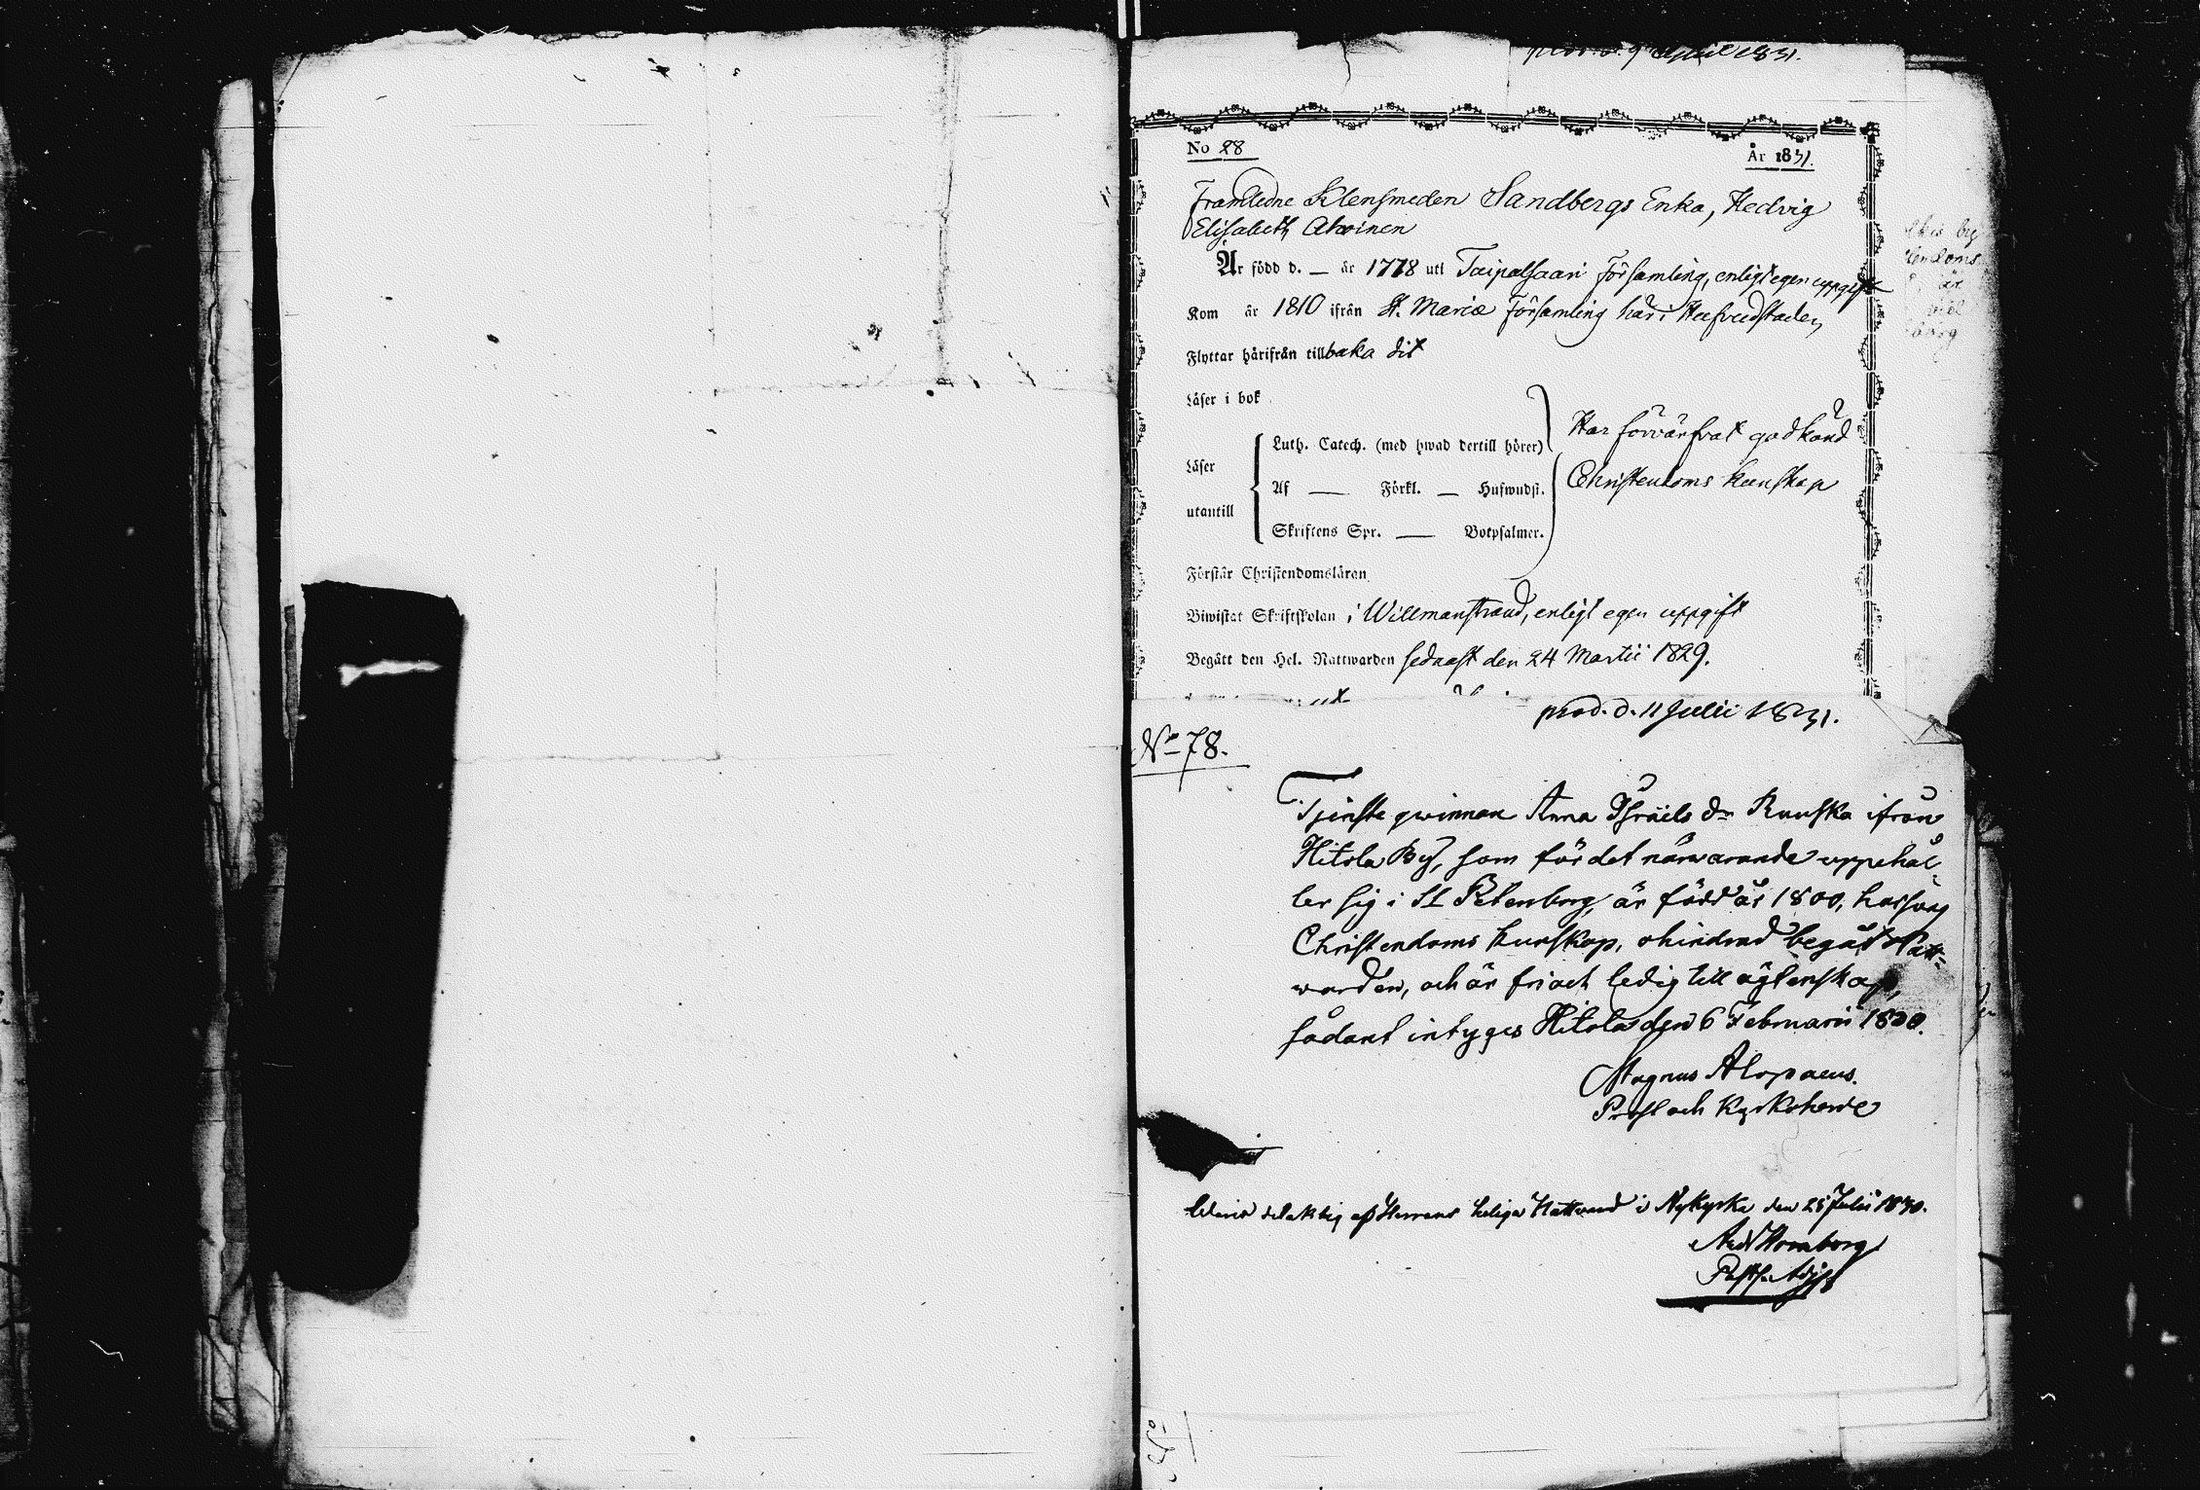 prod. d. 9 April 1831.
No 28
År 1831.
Framledne Klensmeden Sandbergs Enka, Hedvig
Elisabeth Ahoinen
Är född d. — år 1778 uti Taipalsaari Församling, enligt egen uppgift
Kom år 1810 ifrån St. Mariæ Församling här i Hufvudstaden
Flyttar härifrån tillbaka dit
Läser i bok
Luth. Catech. (med hwad dertill hörer)
Har förvärfvat godkänd
Läser
Af — Förkl. — Hufwudst.
Christendoms kunskap
utantill
Skriftens Spr. — Botpsalmer.
Förstår Christendomsläran
Biwistat Skriftskolan i Willmanstrand, enligt egen uppgift
Begått den Hel. Nattwarden sednast den 24 Martii 1829.
prod. d. 11 Julii 1831.
No 78.
Tjenste qwinnan Anna Israels dr Runska ifrån
Hitola By, som för det närwarande uppehål-
ler sig i St Petersborg, är född år 1800, har swag
Christendoms kunskap, ohindrad begått Natt-
warden, och är fri och ledig till ägtenskap,
sådant intyges Hitola den 6 Februarii 1830.
Magnus Alopaeus.
Prost och Kyrkoherde
delaktig af Herrans heliga Nattvard i Nykyrka den 25 Julii 1830.
Hornborg